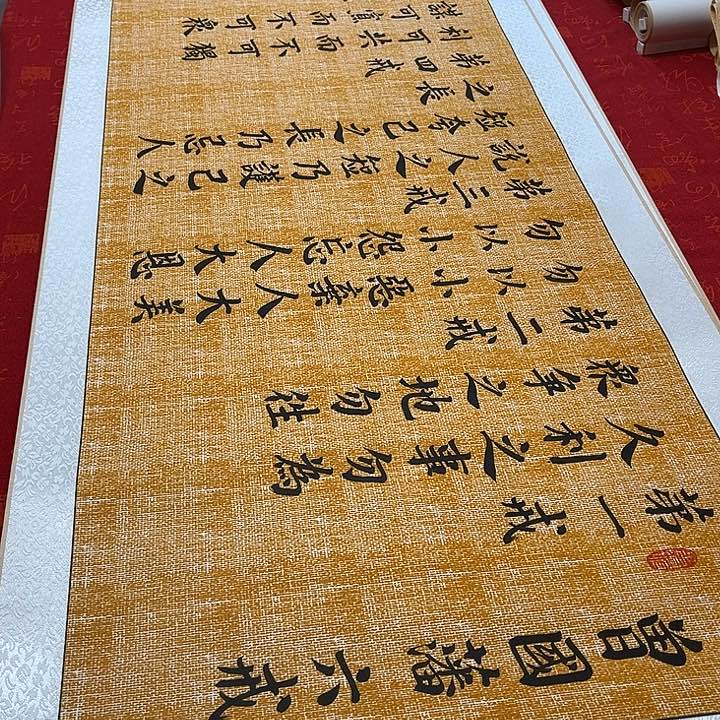 曾國藩六戒
第一戒
久利之事勿為
眾争之地勿往
第二戒
勿以小惡棄人大美
勿以小怨忘人大恩
第三戒
說人之短乃護己之
短夸己之長乃忌人
之長
第四戒
利可共而不可獨
謀可寡而不可眾